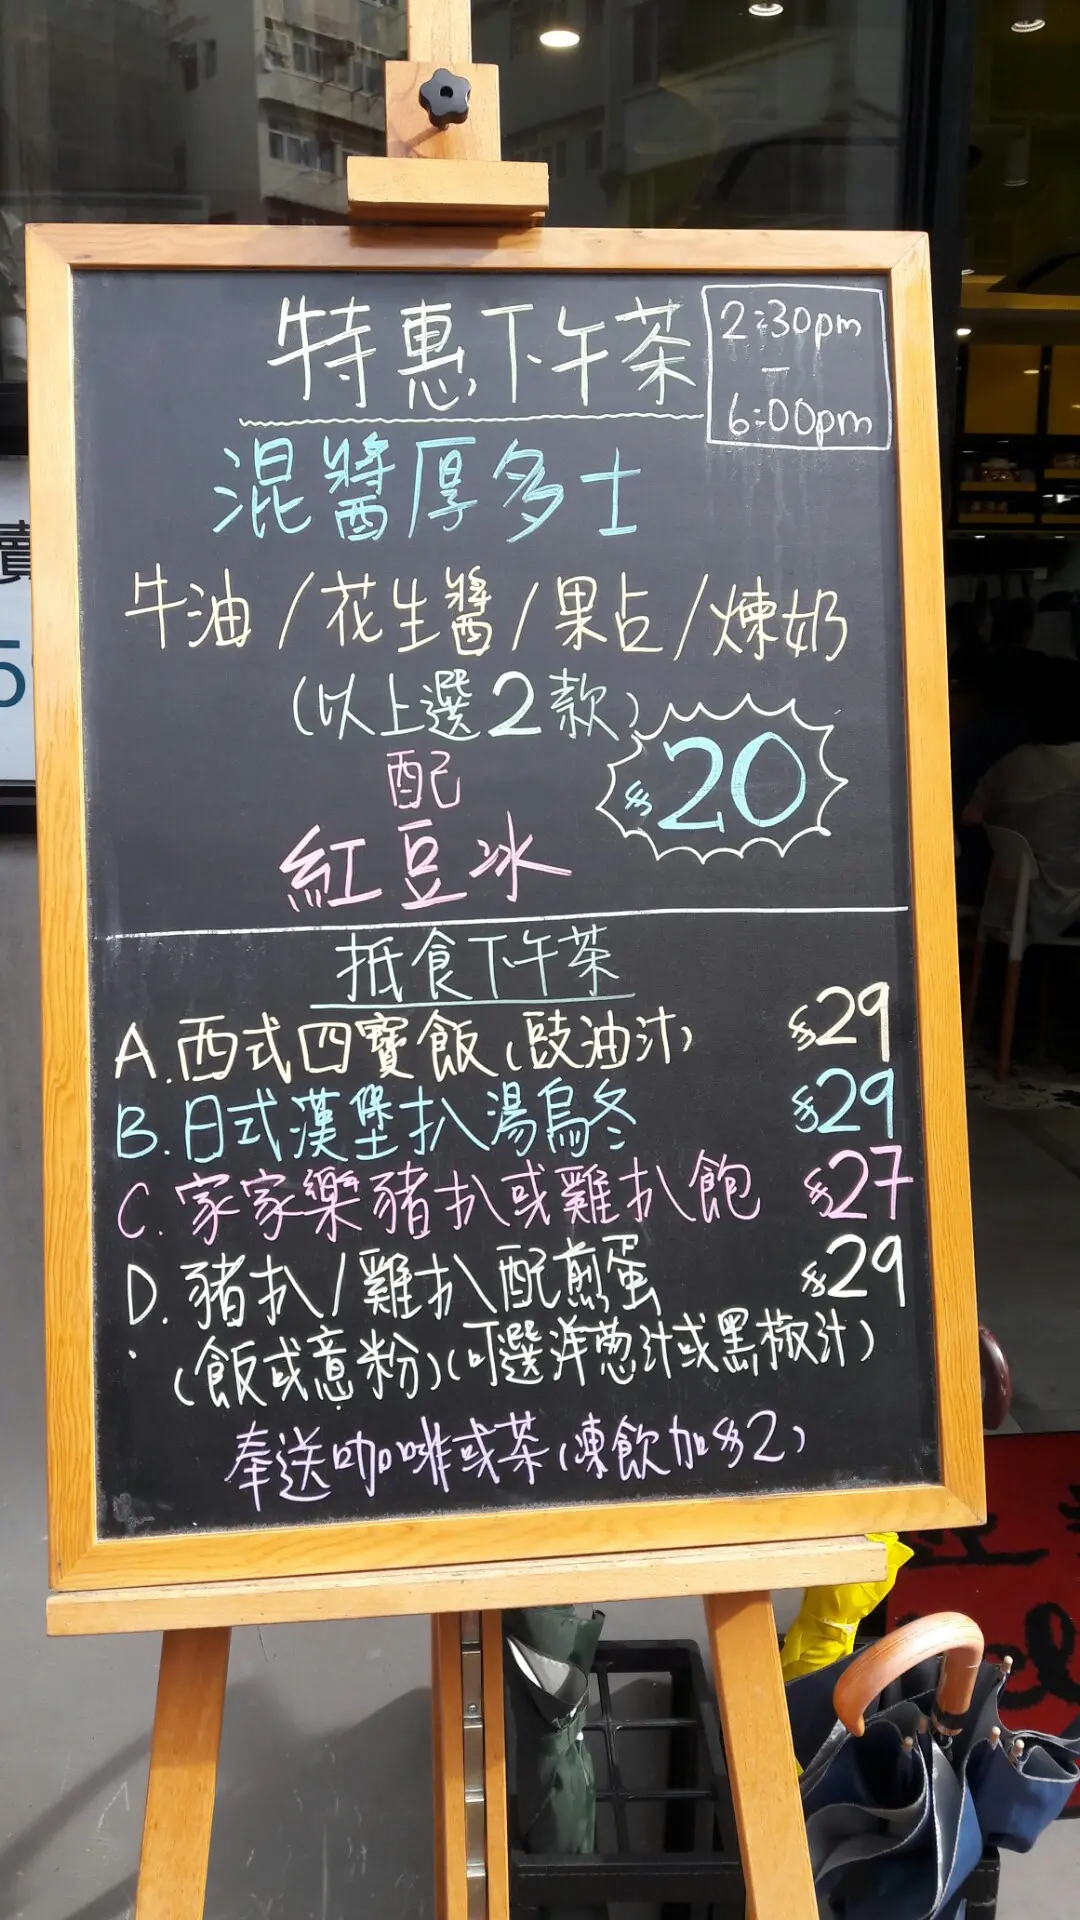 特惠下午茶
2:30pm
—
6:00pm
混醬厚多士
牛油/花生醬/果占/煉奶
(以上選2款)
$20
配
紅豆冰
抵食下午茶
A.西式四寶飯(豉油汁) $29
B.日式漢堡扒湯烏冬 $29
C.家家樂豬扒或雞扒飽 $27
D.豬扒/雞扒配煎蛋 $29
(飯或意粉)(可選洋葱汁或黑椒汁)
奉送咖啡或茶(凍飲加$2)